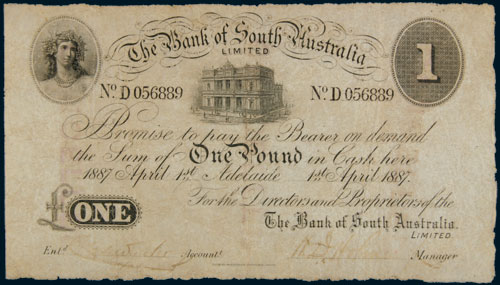 The Bank of South Australia
LIMITED
1
No. D 056889 No. D 056889
Promise to pay the Bearer on demand
the Sum of One Pound in Cash here
1887 April 1st Adelaide 1st April 1887.
For the Directors and Proprietors of the
£ONE
The Bank of South Australia.
LIMITED.
Entd. Accountt. Manager